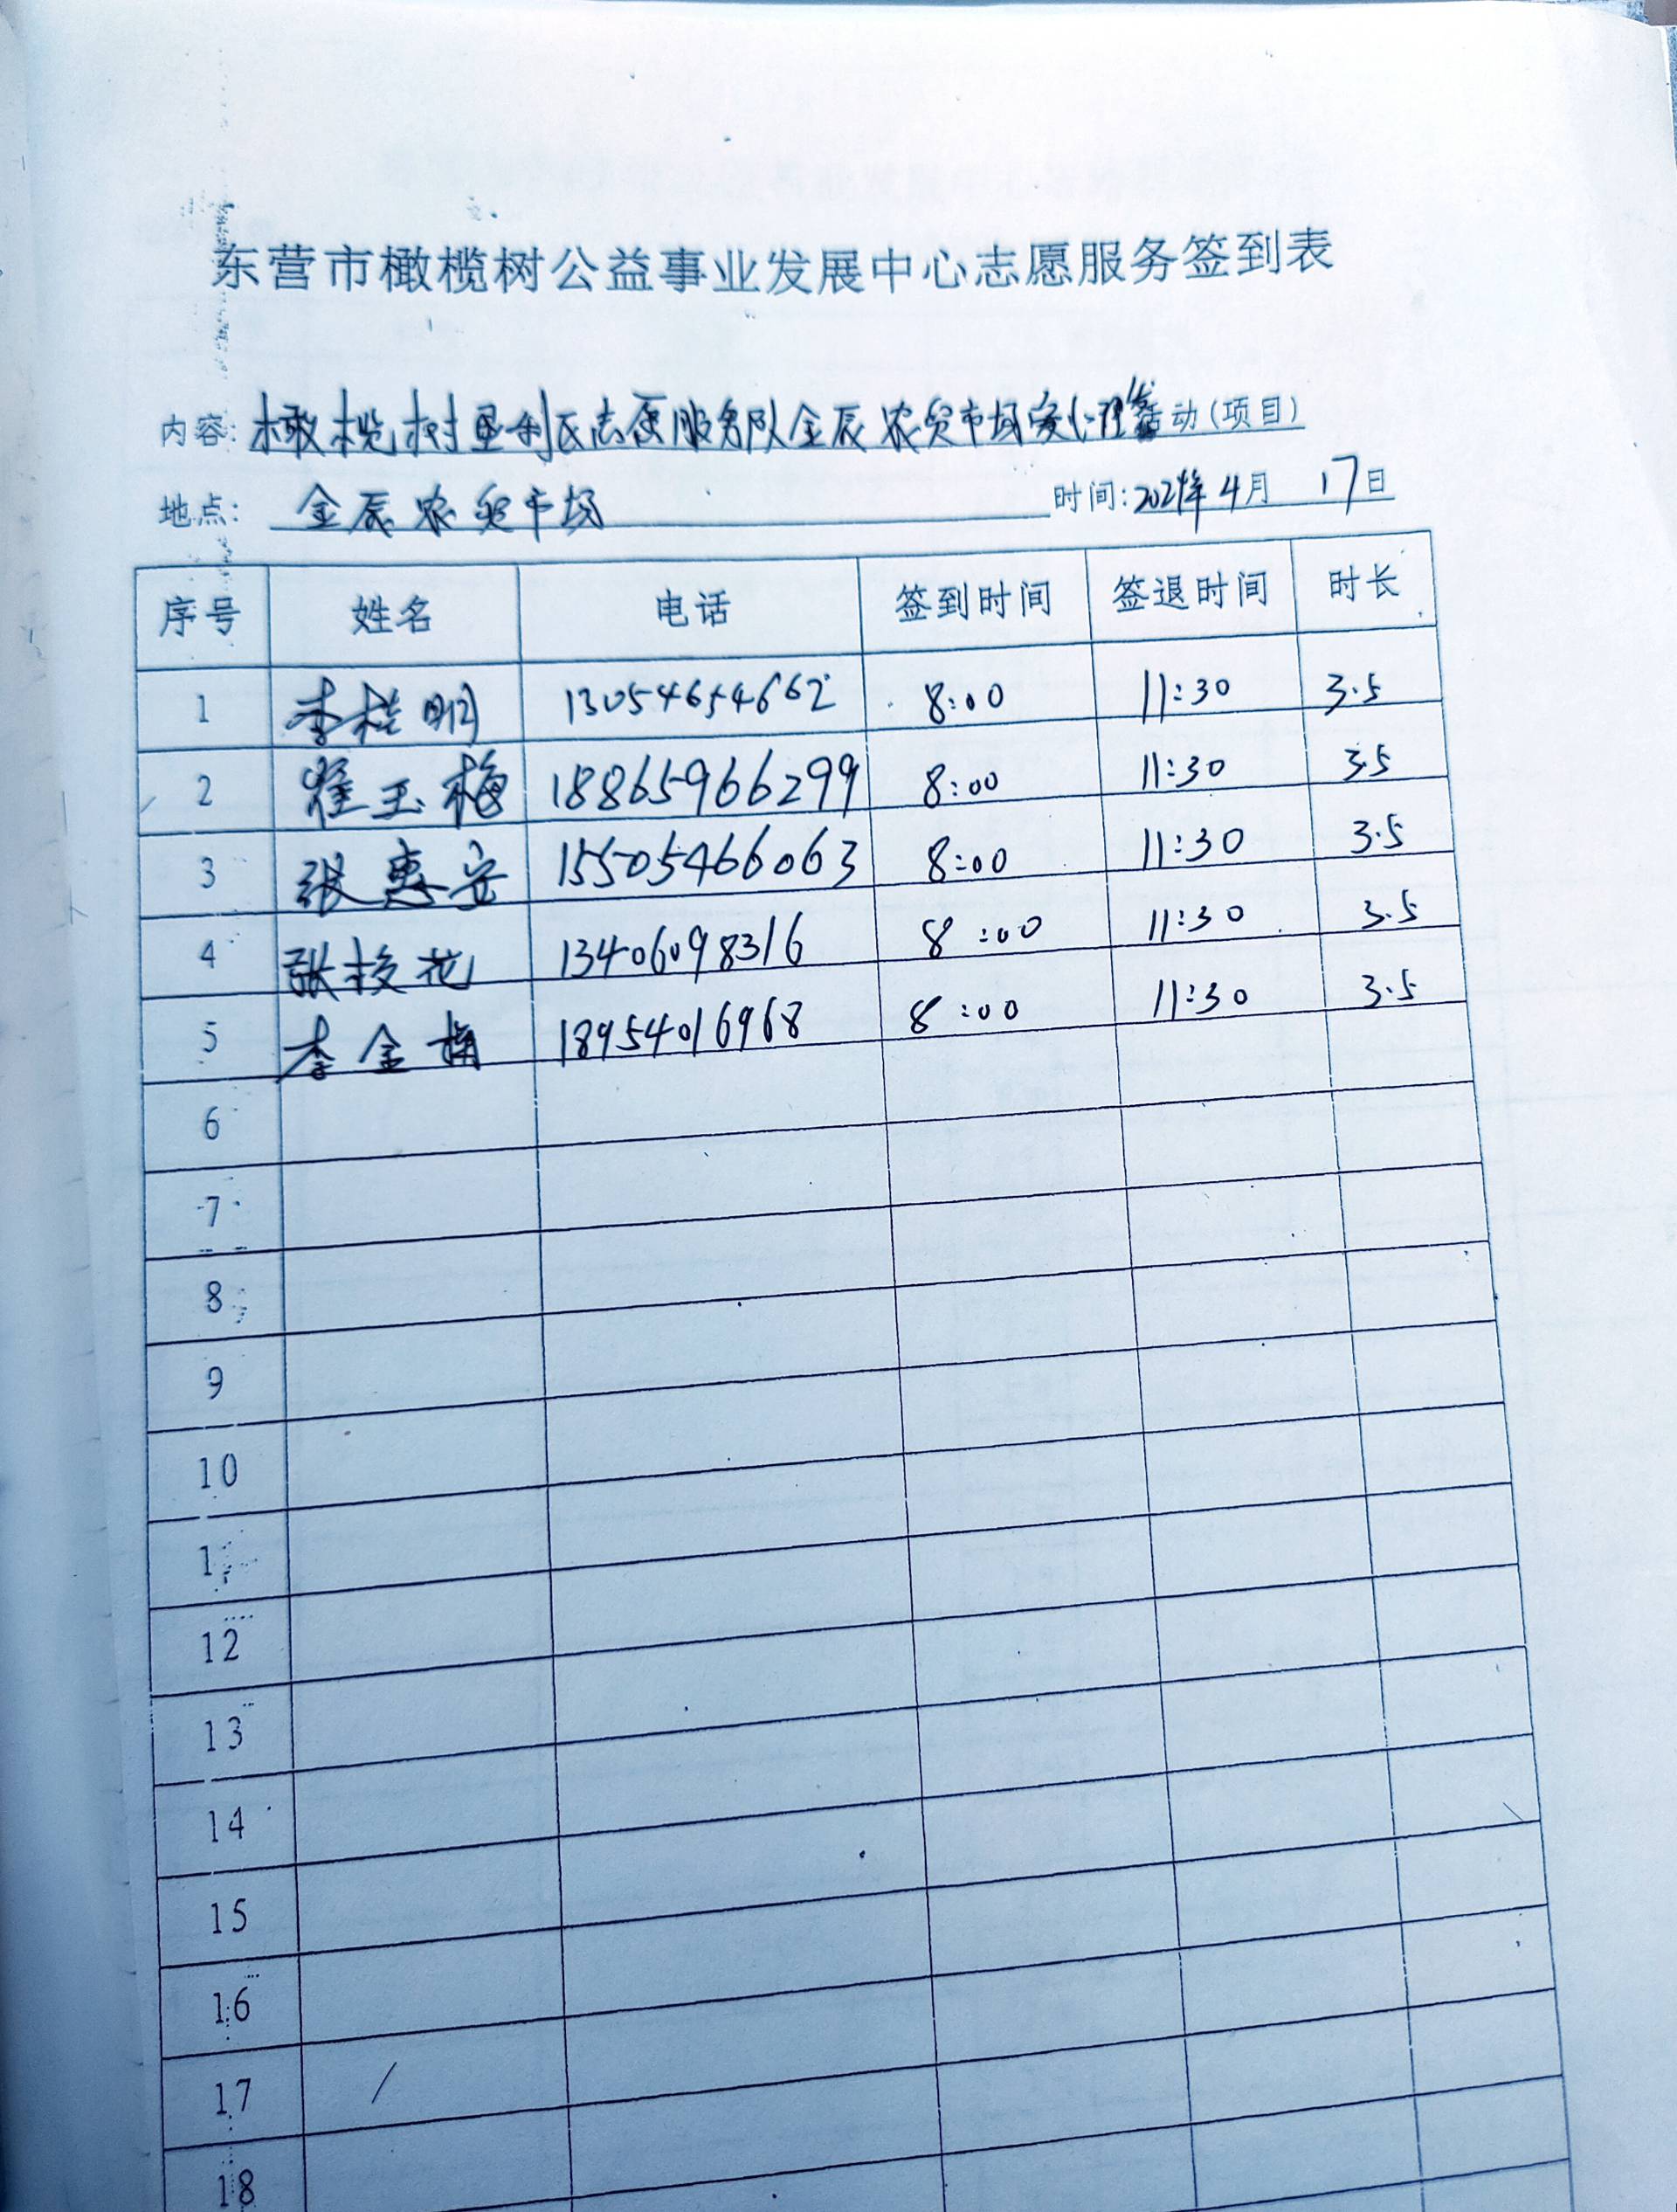 东营市橄榄树公益事业发展中心志愿服务签到表
内容:橄榄树垦利区志愿服务队金辰农贸市场爱心理发活动(项目)
地点:金辰农贸市场 时间:2024年4月17日
序号 姓名 电话 签到时间 签退时间 时长
1 李桂明 13054654662 8:00 11:30 3.5
2 崔玉梅 18865966299 8:00 11:30 3.5
3 张惠安 15505466063 8:00 11:30 3.5
4 张枝花 13406098316 8:00 11:30 3.5
5 李金梅 18954016968 8:00 11:30 3.5
6
7
8
9
10
1
12
13
14
15
16
17
18